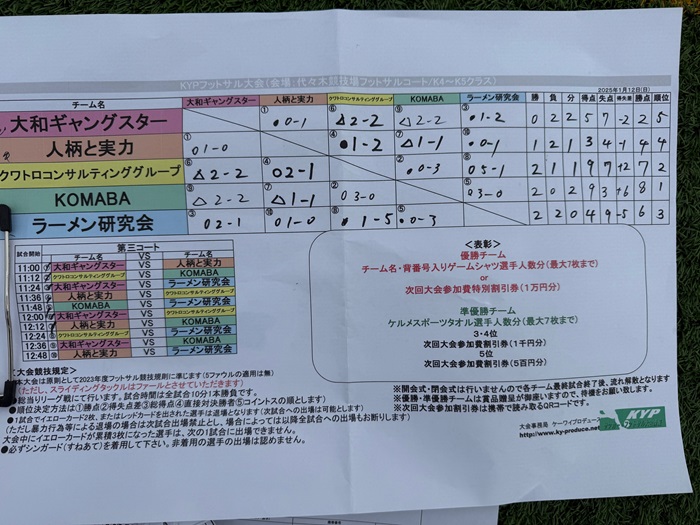 KYPフットサル大会(会場:代々木競技場フットサルコート/K4～K5クラス)
2025年1月12日(日)
チーム名 大和ギャングスター 人柄と実力 クワトロコンサルティンググループ KOMABA ラーメン研究会 勝 負 分 得点 失点 得失差 勝点 順位
大和ギャングスター ①●0-1 ⑥△2-2 ⑨△2-2 ③●1-2 0 2 2 5 7 -2 2 5
人柄と実力 ①○1-0 ④●1-2 ⑦△1-1 ⑩●0-1 1 2 1 3 4 -1 4 4
クワトロコンサルティンググループ ⑥△2-2 ④○2-1 ②●0-3 ⑧○5-1 2 1 1 9 7 +2 7 2
KOMABA ⑨△2-2 ⑦△1-1 ②○3-0 ⑤○3-0 2 0 2 9 3 +6 8 1
ラーメン研究会 ③○2-1 ⑩○1-0 ⑧●1-5 ⑤●0-3 2 2 0 4 9 -5 6 3
第三コート
試合開始 チーム名 VS チーム名
11:00 大和ギャングスター VS 人柄と実力
11:12 クワトロコンサルティンググループ VS KOMABA
11:24 大和ギャングスター VS ラーメン研究会
11:36 人柄と実力 VS クワトロコンサルティンググループ
11:48 KOMABA VS ラーメン研究会
12:00 大和ギャングスター VS クワトロコンサルティンググループ
12:12 人柄と実力 VS KOMABA
12:24 クワトロコンサルティンググループ VS ラーメン研究会
12:36 ⑨ 大和ギャングスター VS KOMABA
12:48 ⑩ 人柄と実力 VS ラーメン研究会
<表彰>
優勝チーム
チーム名・背番号入りゲームシャツ選手人数分(最大7枚まで)
or
次回大会参加費特別割引券(1万円分)
準優勝チーム
ケルメスポーツタオル選手人数分(最大7枚まで)
3・4位
次回大会参加費割引券(1千円分)
5位
次回大会参加費割引券(5百円分)
【大会競技規定】
●本大会は原則として2023年度フットサル競技規則に準じます(5ファウルの適用は無)
(ただし、スライディングタックルはファールとさせていただきます)
●総当りリーグ戦にて行います。試合時間は全試合10分1本勝負です。
●順位決定方法は①勝点②得失点差③総得点④直接対決勝者⑤コイントスの順とします)
●1試合でイエローカード2枚、またはレッドカードを出された選手は退場となります(次試合への出場は可能とします)
(ただし暴力行為等による退場の場合は次試合出場禁止とし、場合によっては以降全試合への出場もお断りします)
大会中にイエローカードが累積3枚になった選手は、次の1試合に出場できません。
●必ずシンガード(すねあて)を着用して下さい。非着用の選手の出場は認めません。
※開会式・閉会式は行いませんので各チーム最終試合終了後、流れ解散となります
※優勝・準優勝チームは賞品贈呈が御座いますので、待機をお願い致します。
※次回大会参加費割引券は携帯で読み取るQRコードです。
大会事務局 ケーワイプロデュース
http://www.ky-produce.net
KYP